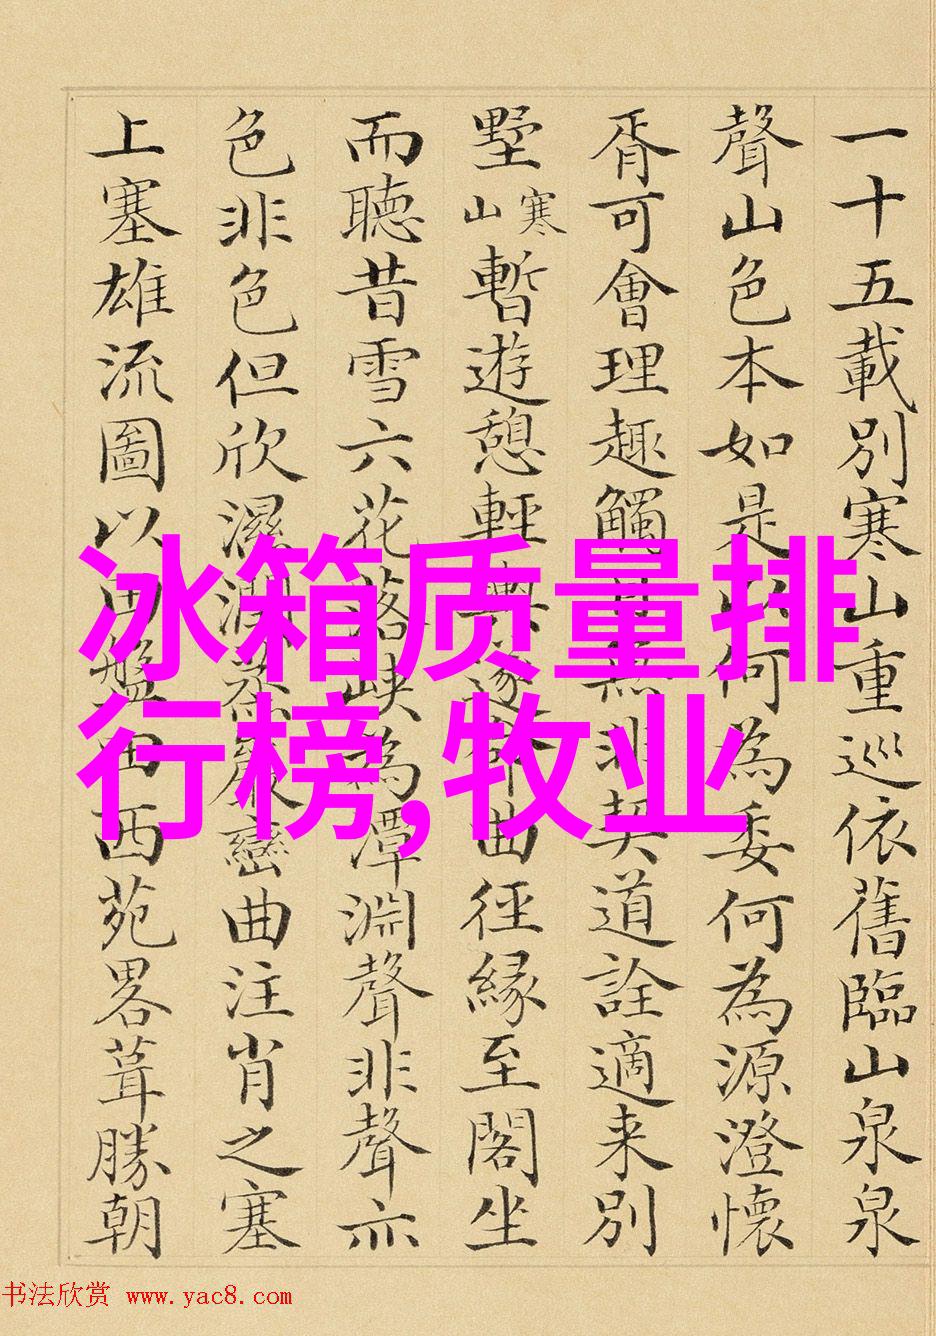 一十五載別寒山重巡依舊臨山泉泉
聲山色本如是何為委何為源澄懷
胥可會理趣觸非契道詮適来別
墅寒山暫遊憩輕曲徑縁至閣坐
而聽昔雪六花落峽為潭淵聲非聲亦
色非色但欣濕潤巒曲注肖之塞
上塞雄流圖以西苑畧葺勝朝
冰箱质量排
行榜,牧业
书法欣赏 www.yac8.com